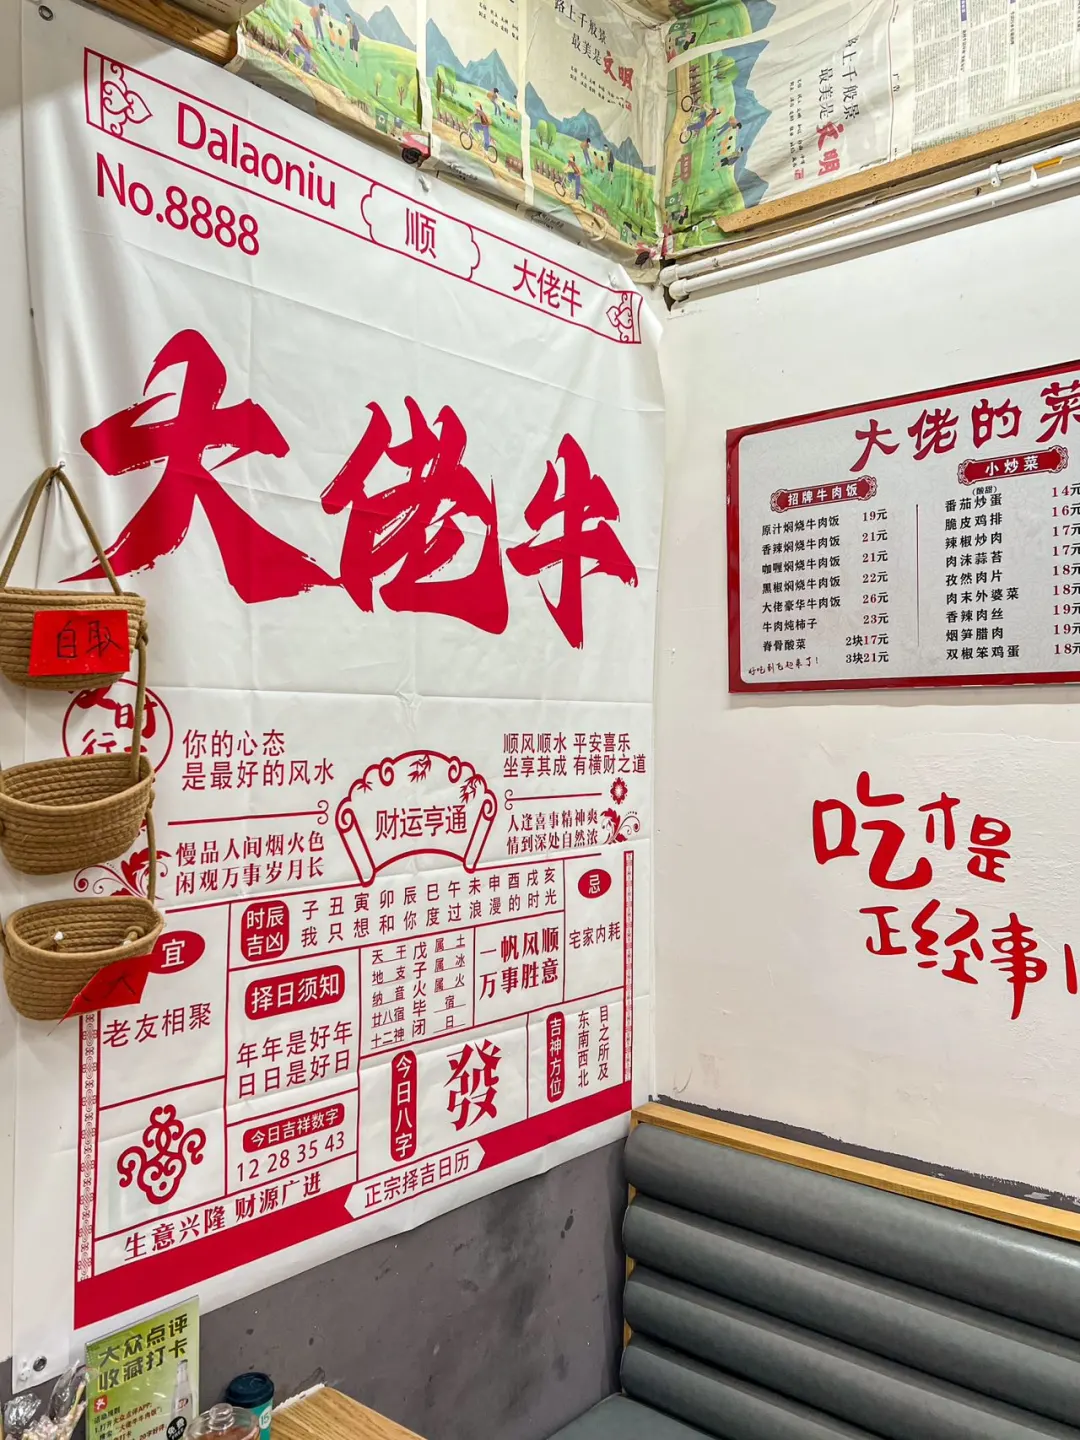 路上千般景
最美是文明
路上千般景
最美是文明
广告
Dalaoniu
顺
大佬牛
No.8888
大佬牛
自取
你的心态
是最好的风水
慢品人间烟火色
闲观万事岁月长
财运亨通
顺风顺水 平安喜乐
坐享其成 有横财之道
人逢喜事精神爽
情到深处自然浓
宜
老友相聚
时辰
吉凶
子丑寅卯辰巳午未申酉戌亥
我只想和你度过浪漫的时光
忌
宅家内耗
择日须知
年年是好年
日日是好日
天王戊属土
地支子属冰
纳音火属火
廿八宿毕宿
十二神闭日
一帆风顺
万事胜意
今日吉祥数字
12 28 35 43
今日八字
發
吉神方位
东南西北
目之所及
生意兴隆 财源广进
正宗择吉日历
大佬的菜
招牌牛肉饭
原汁焖烧牛肉饭 19元
香辣焖烧牛肉饭 21元
咖喱焖烧牛肉饭 21元
黑椒焖烧牛肉饭 22元
大佬豪华牛肉饭 26元
牛肉炖柿子 23元
脊骨酸菜 2块17元
3块21元
好吃到飞起来了!
小炒菜
(酸甜)
番茄炒蛋 14元
脆皮鸡排 16元
辣椒炒肉 17元
肉沫蒜苔 17元
孜然肉片 18元
肉末外婆菜 18元
香辣肉丝 19元
烟笋腊肉 19元
双椒笨鸡蛋 18元
吃才是
正经事
大众点评
收藏打卡